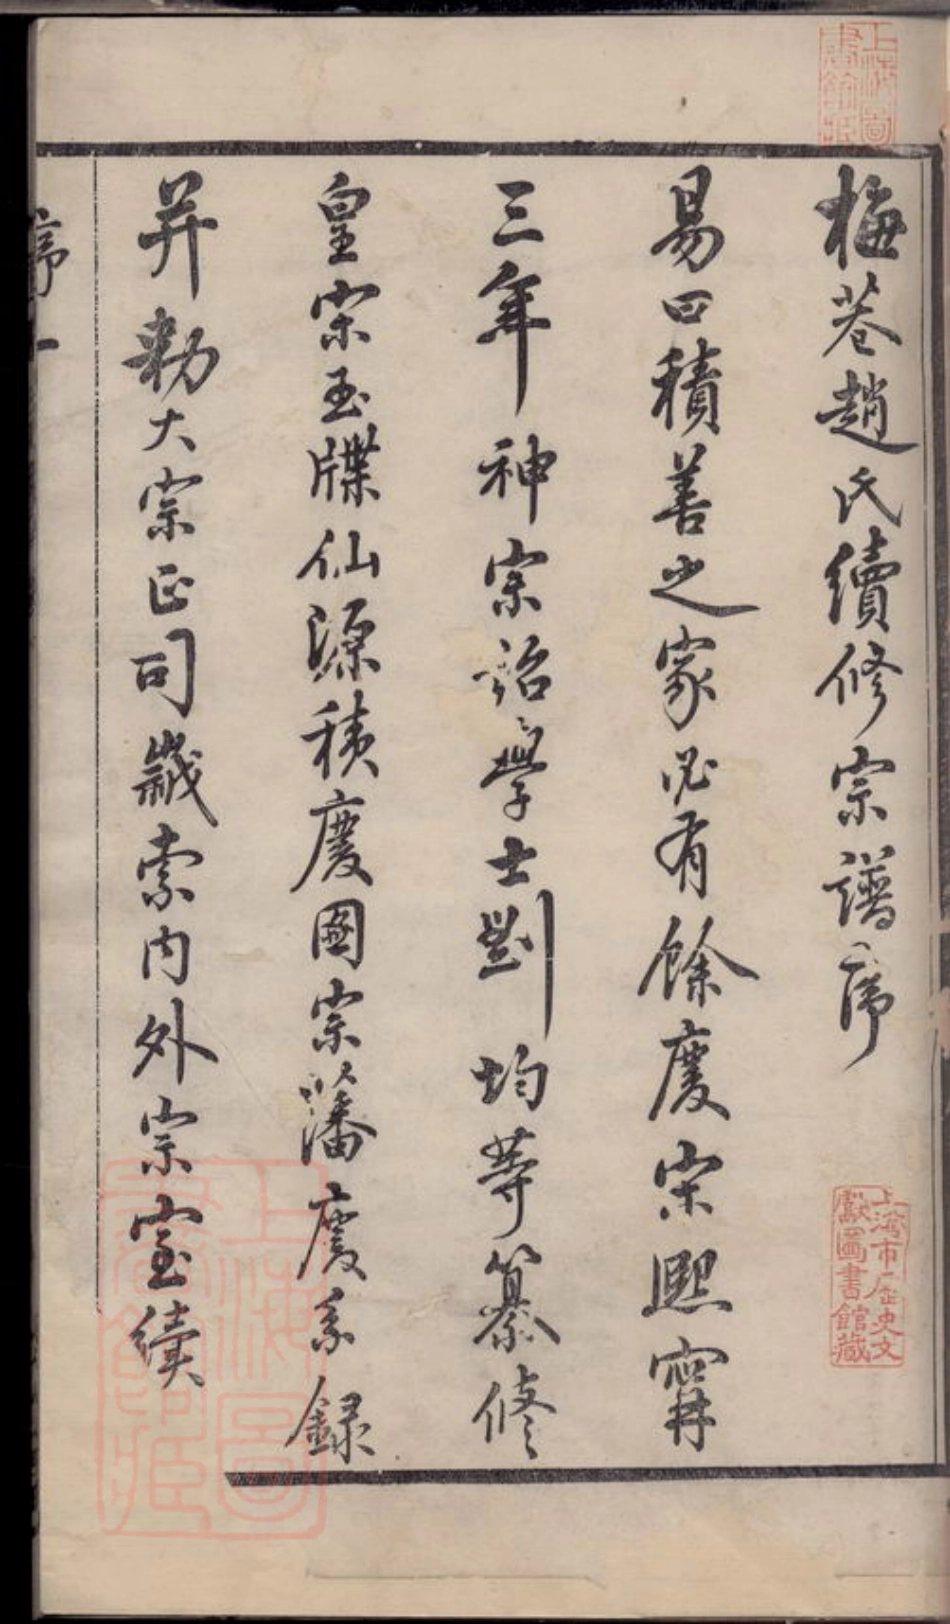 梅巷趙氏續修宗譜序
易曰積善之家必有餘慶宋熙寧
三年神宗詔學士劉均等纂修
皇宗玉牒仙源積慶圖宗藩慶系錄
并勅大宗正司歲索內外宗室續
序 一
上海圖書館藏
上海市歷史文獻圖書館藏
上海圖書館藏